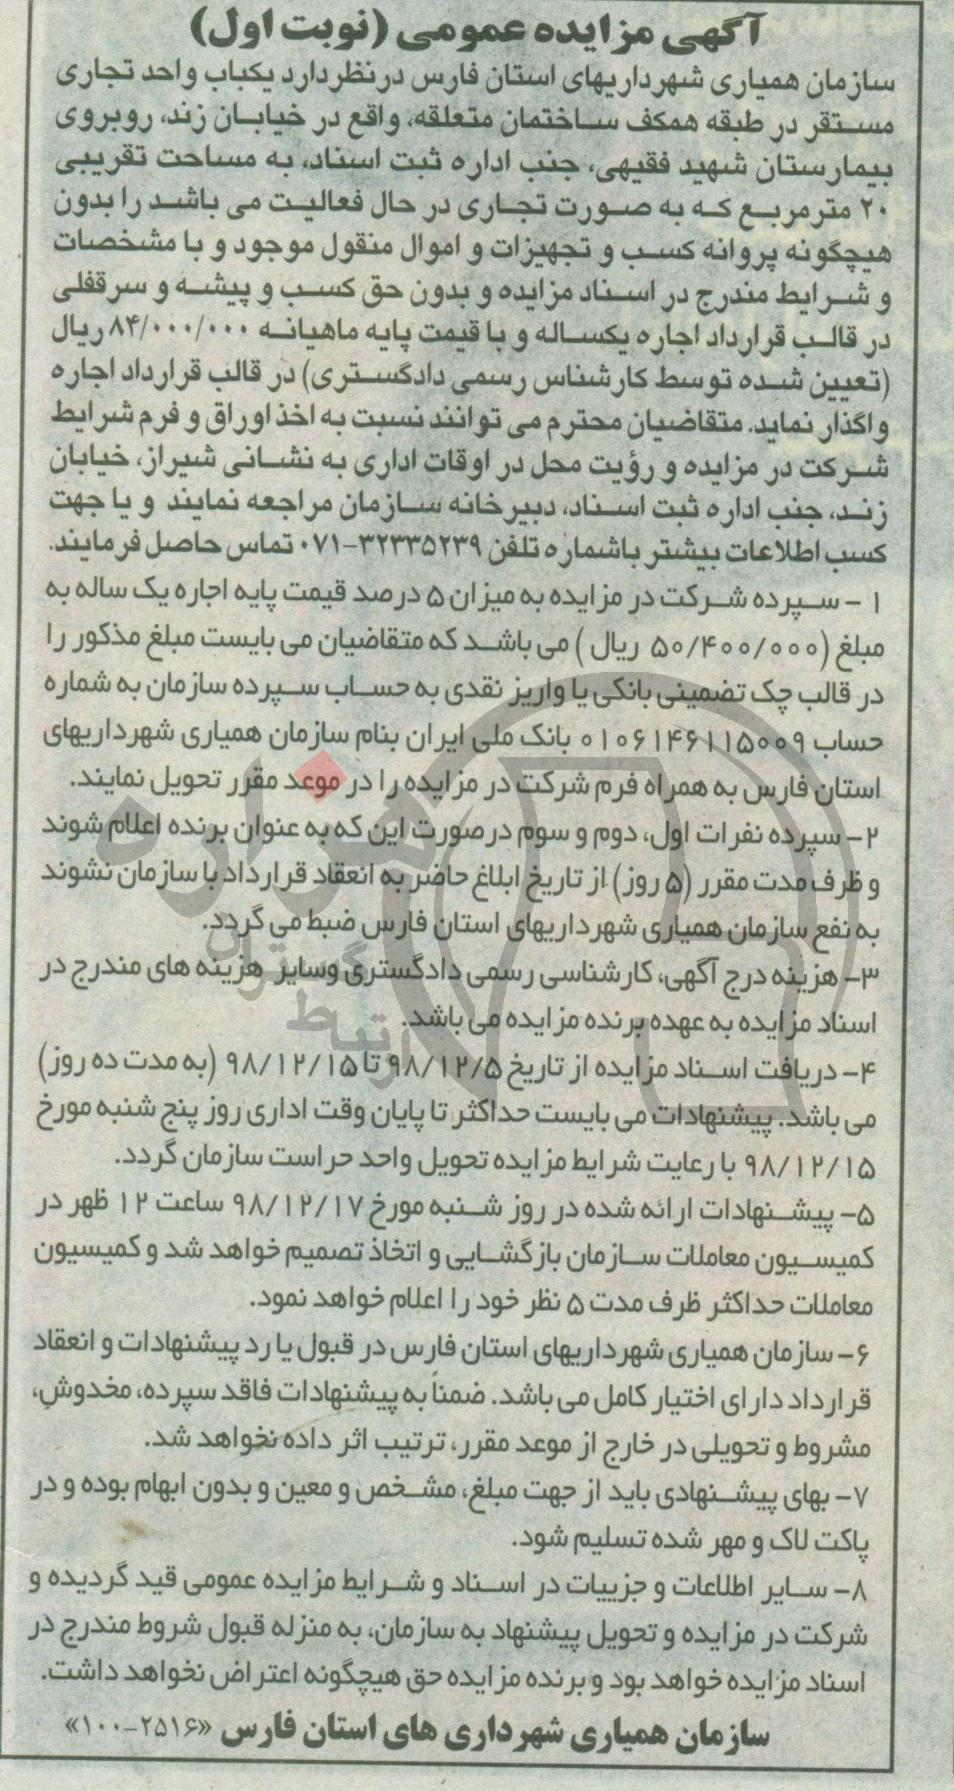 آگهی مزایده عمومی (نوبت اول)
سازمان همیاری شهرداریهای استان فارس درنظردارد یکباب واحد تجاری
مستقر در طبقه همکف ساختمان متعلقه، واقع در خیابان زند، روبروی
بیمارستان شهید فقیهی، جنب اداره ثبت اسناد، به مساحت تقریبی
۲۰ مترمربع که به صورت تجاری در حال فعالیت می باشد را بدون
هیچگونه پروانه کسب و تجهیزات و اموال منقول موجود و با مشخصات
و شرایط مندرج در اسناد مزایده و بدون حق کسب و پیشه و سرقفلی
در قالب قرارداد اجاره یکساله و با قیمت پایه ماهیانه ۸۴/۰۰۰/۰۰۰ ریال
(تعیین شده توسط کارشناس رسمی دادگستری) در قالب قرارداد اجاره
واگذار نماید. متقاضیان محترم می توانند نسبت به اخذ اوراق و فرم شرایط
شرکت در مزایده و رؤیت محل در اوقات اداری به نشانی شیراز، خیابان
زند، جنب اداره ثبت اسناد، دبیرخانه سازمان مراجعه نمایند و یا جهت
کسب اطلاعات بیشتر باشماره تلفن ۳۲۳۳۵۲۳۹-۰۷۱ تماس حاصل فرمایند.
۱ - سپرده شرکت در مزایده به میزان ۵ درصد قیمت پایه اجاره یک ساله به
مبلغ (۵۰/۴۰۰/۰۰۰ ریال ) می باشد که متقاضیان می بایست مبلغ مذکور را
در قالب چک تضمینی بانکی یا واریز نقدی به حساب سپرده سازمان به شماره
حساب ۰۱۰۶۱۴۶۱۱۵۰۰۹ بانک ملی ایران بنام سازمان همیاری شهرداریهای
استان فارس به همراه فرم شرکت در مزایده را در موعد مقرر تحویل نمایند.
۲- سپرده نفرات اول، دوم و سوم درصورت این که به عنوان برنده اعلام شوند
و ظرف مدت مقرر (۵ روز) از تاریخ ابلاغ حاضر به انعقاد قرارداد با سازمان نشوند
به نفع سازمان همیاری شهرداریهای استان فارس ضبط می گردد.
۳- هزینه درج آگهی، کارشناسی رسمی دادگستری وسایر هزینه های مندرج در
اسناد مزایده به عهده برنده مزایده می باشد.
۴- دریافت اسناد مزایده از تاریخ ۹۸/۱۲/۵ تا ۹۸/۱۲/۱۵ (به مدت ده روز)
می باشد. پیشنهادات می بایست حداکثر تا پایان وقت اداری روز پنج شنبه مورخ
۹۸/۱۲/۱۵ با رعایت شرایط مزایده تحویل واحد حراست سازمان گردد.
۵- پیشنهادات ارائه شده در روز شنبه مورخ ۹۸/۱۲/۱۷ ساعت ۱۲ ظهر در
کمیسیون معاملات سازمان بازگشایی و اتخاذ تصمیم خواهد شد و کمیسیون
معاملات حداکثر ظرف مدت ۵ نظر خود را اعلام خواهد نمود.
۶- سازمان همیاری شهرداریهای استان فارس در قبول یا رد پیشنهادات و انعقاد
قرارداد دارای اختیار کامل می باشد. ضمناً به پیشنهادات فاقد سپرده، مخدوش،
مشروط و تحویلی در خارج از موعد مقرر، ترتیب اثر داده نخواهد شد.
۷- بهای پیشنهادی باید از جهت مبلغ، مشخص و معین و بدون ابهام بوده و در
پاکت لاک و مهر شده تسلیم شود.
۸- سایر اطلاعات و جزییات در اسناد و شرایط مزایده عمومی قید گردیده و
شرکت در مزایده و تحویل پیشنهاد به سازمان، به منزله قبول شروط مندرج در
اسناد مزایده خواهد بود و برنده مزایده حق هیچگونه اعتراض نخواهد داشت.
سازمان همیاری شهرداری های استان فارس «۲۵۱۶-۱۰۰»